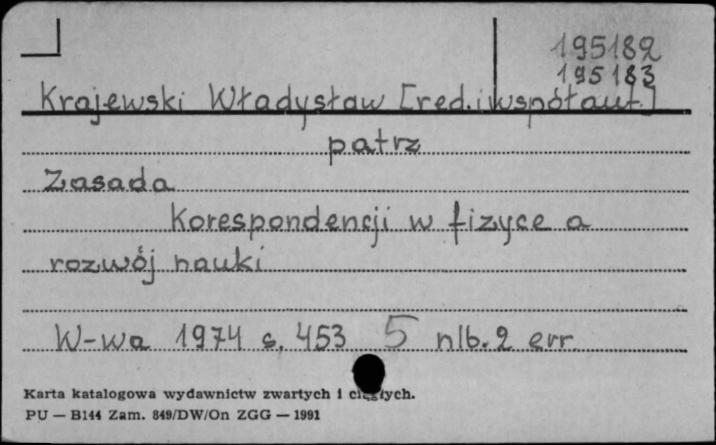 195182
195183
Krajewski Władysław [red.i współaut.]
patrz
Zasada
Korespondencji w fizyce a
rozwój nauki
W-wa 1974 s. 453 5 nlb. 2 err
Karta katalogowa wydawnictw zwartych i ciągłych.
PU — B144 Zam. 849/DW/On ZGG — 1991